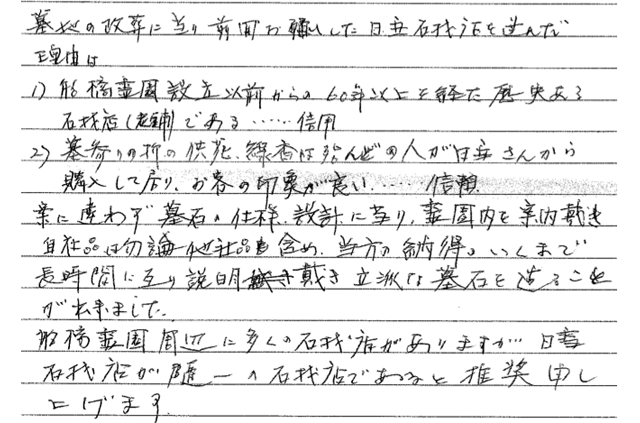 墓地の改葬に当り前回お願いした日東石材店を選んだ
理由は
1) 船橋霊園設立以前からの60年以上を経た歴史ある
石材店(老舗)である……信用
2) 墓参りの折の供花、線香は殆んどの人が日東さんから
購入して居り、お客の印象が良い……信頼
案に違わず墓石の仕様、設計に当り、霊園内を案内戴き
自社品は勿論他社品も含め、当方の納得のいくまで
長時間に亘り説明戴き立派な墓石を造ること
が出来ました。
船橋霊園周辺に多くの石材店がありますが 日東
石材店が随一の石材店であると推奨申し
上げます。